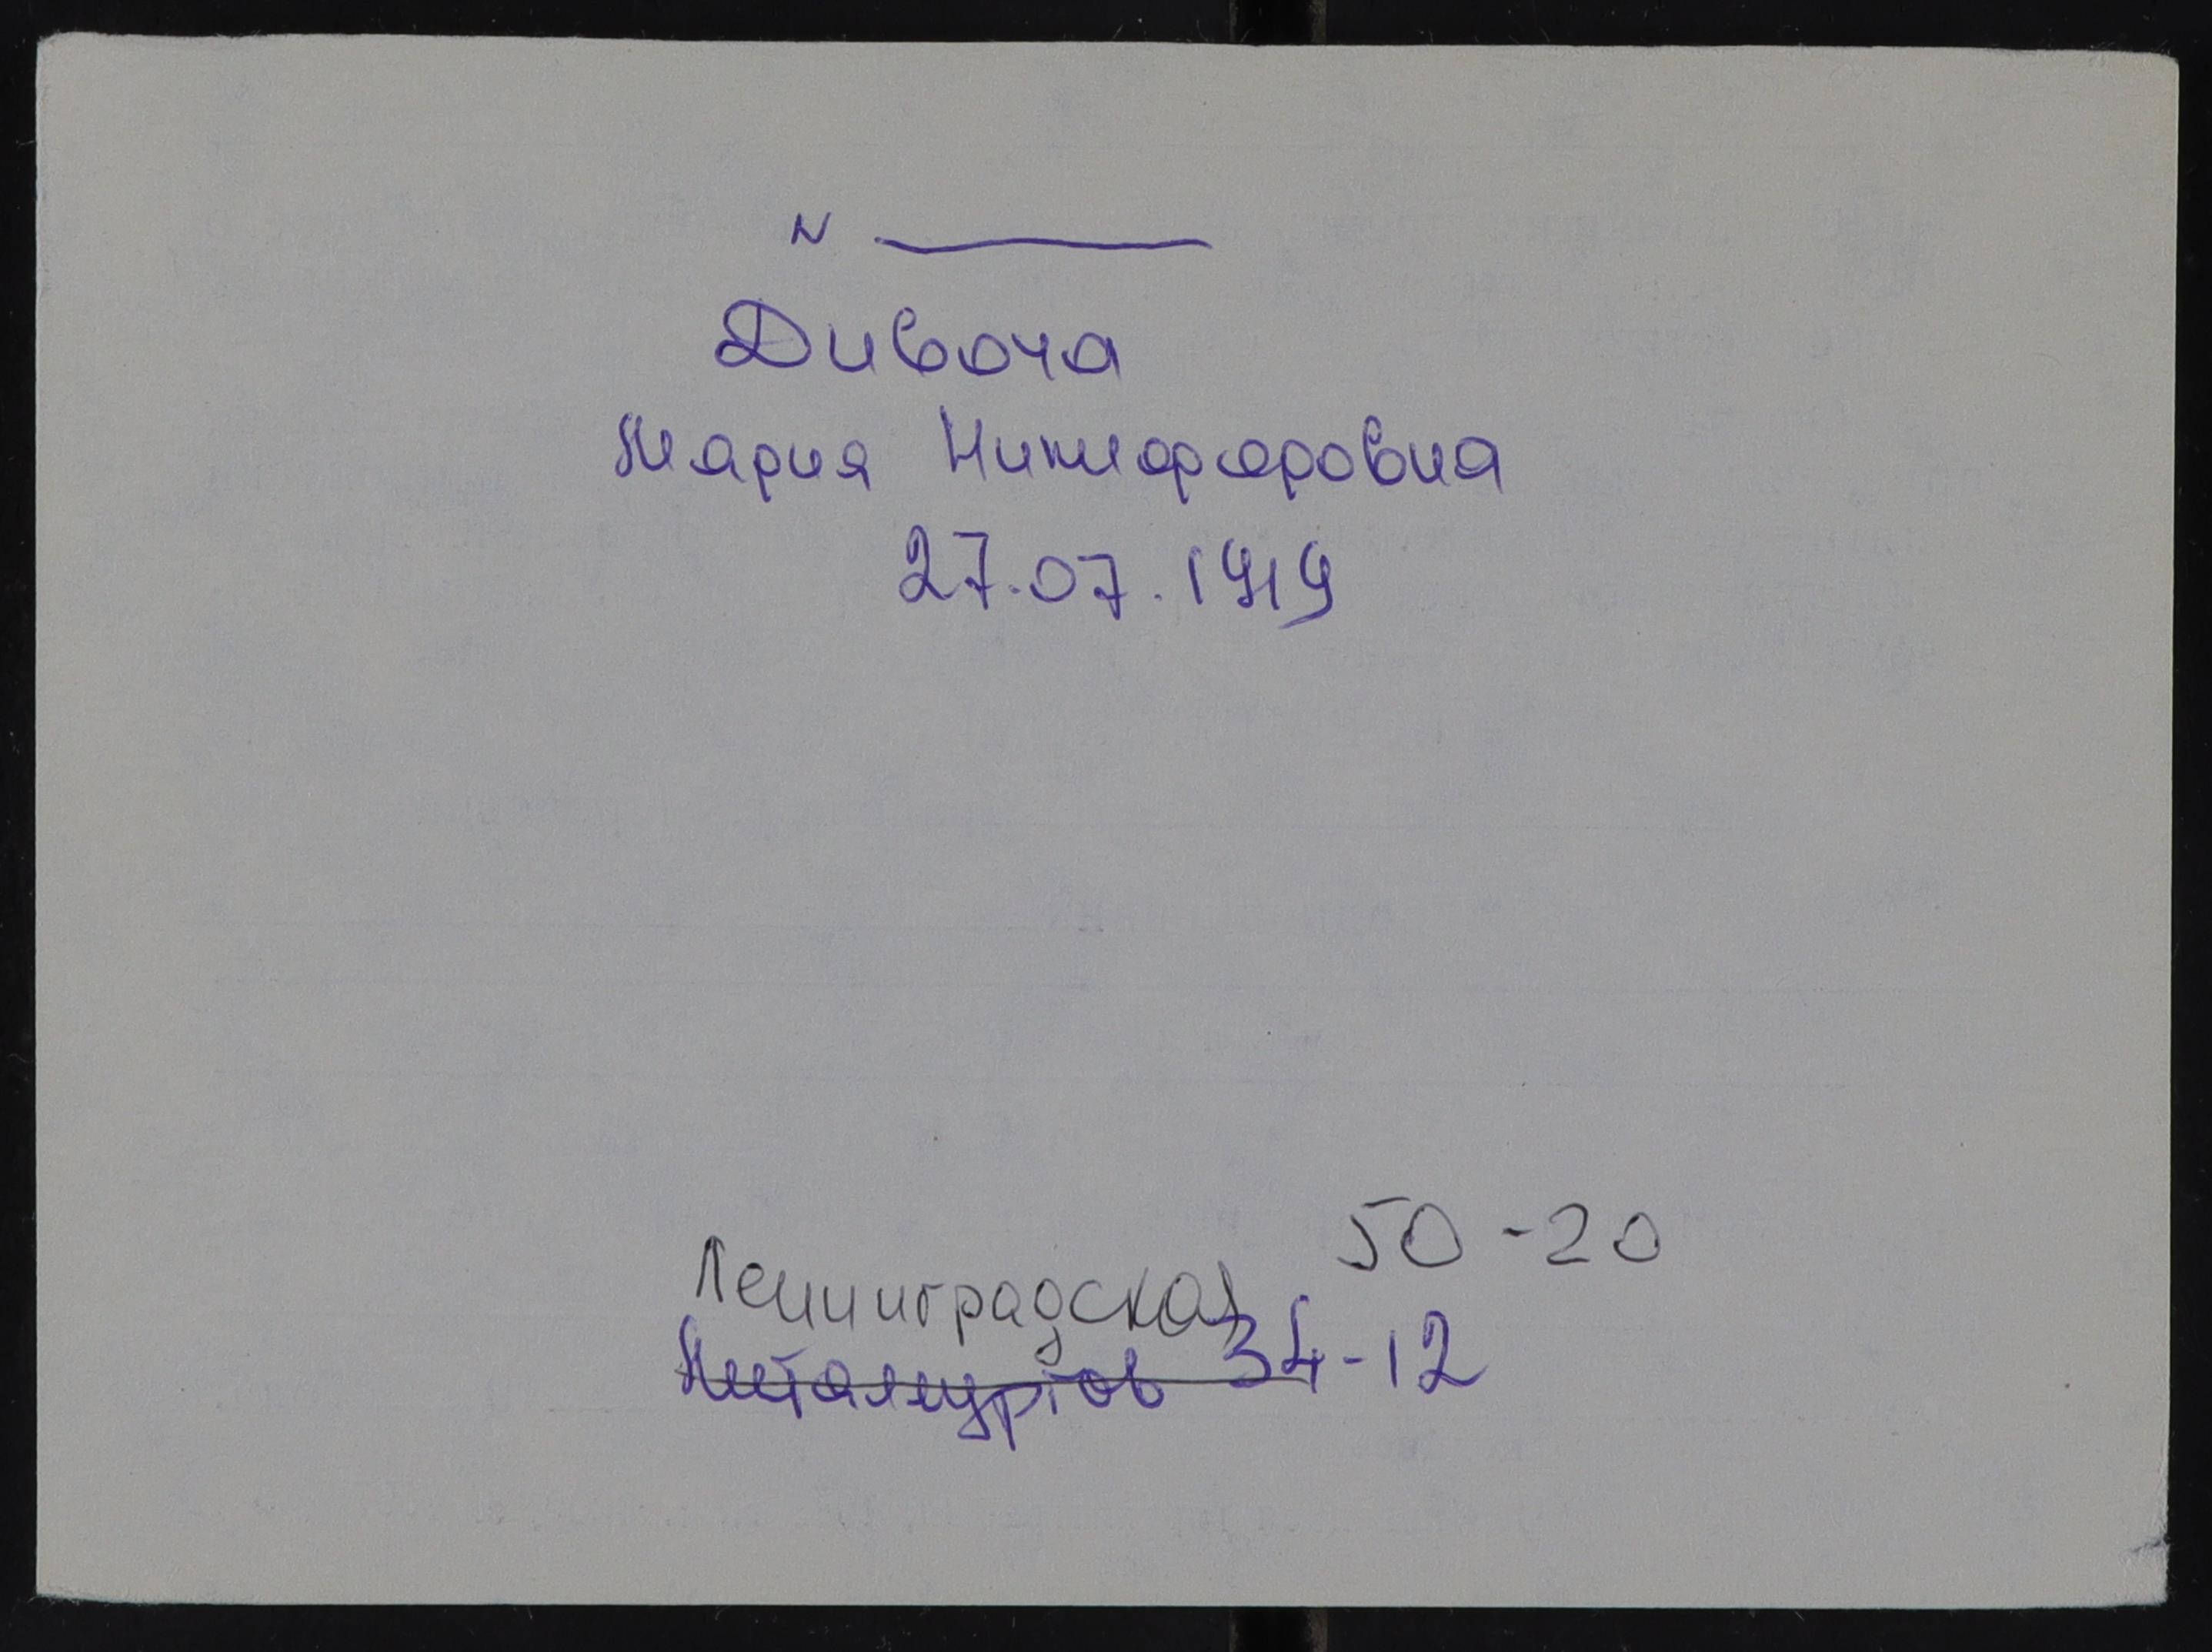 N ______
Дивоча
Мария Никифоровна
27.07.1919
Ленинградская 50-20
Металургов 34-12